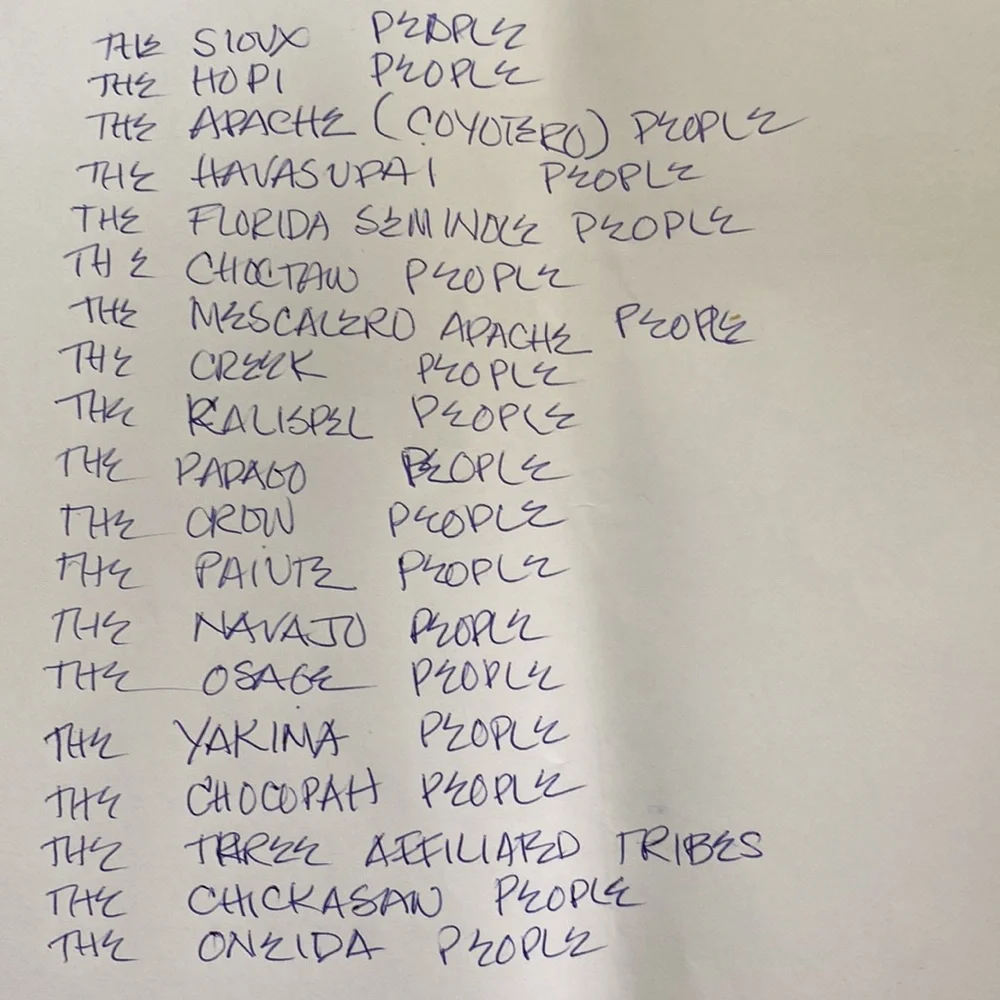 THE SIOUX PEOPLE
THE HOPI PEOPLE
THE APACHE (COYOTERO) PEOPLE
THE HAVASUPAI PEOPLE
THE FLORIDA SEMINOLE PEOPLE
THE CHOCTAW PEOPLE
THE MESCALERO APACHE PEOPLE
THE CREEK PEOPLE
THE KALISPEL PEOPLE
THE PAPAGO PEOPLE
THE CROW PEOPLE
THE PAIUTE PEOPLE
THE NAVAJO PEOPLE
THE OSAGE PEOPLE
THE YAKIMA PEOPLE
THE CHOCOPAH PEOPLE
THE THREE AFFILIARED TRIBES
THE CHICKASAW PEOPLE
THE ONEIDA PEOPLE